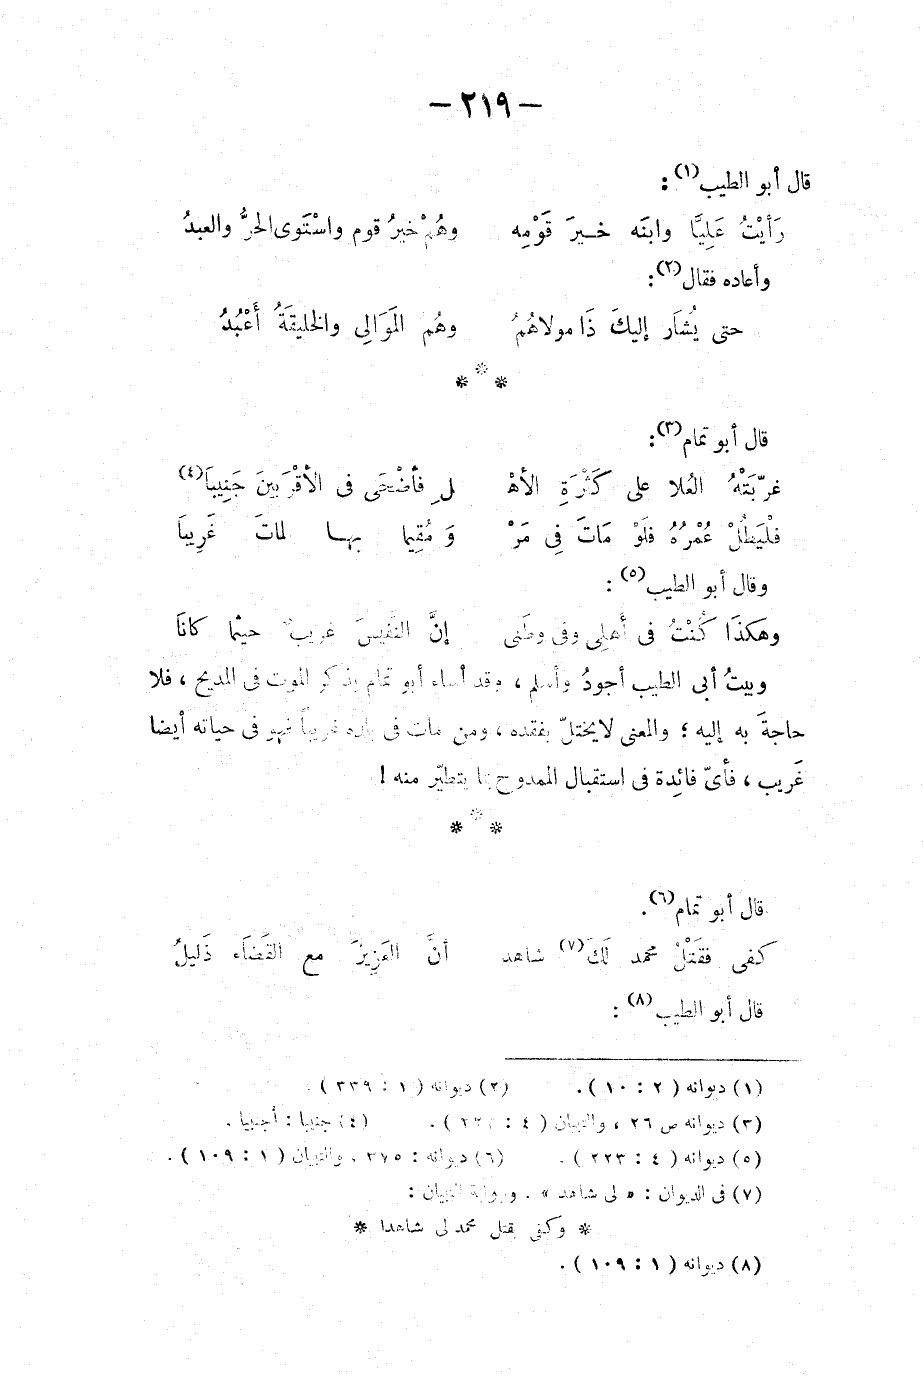 — ٢١٩ —
قال أبو الطيب(١) :
رَأيْتُ عَلِيًّا وابنَه خــيرَ قَوْمِه وهُمْ خيرُ قوم واسْتَوى الحرُّ والعبدُ
وأعاده فقال(٢) :
حتى يُشار إليكَ ذَا مولاهُمُ وهُم المَوَالِى والخليقَةُ أَعْبُدُ
* * *
قال أبو تمام(٣) :
غرّبَتْهُ العُلا على كَثْرَةِ الأهْ لِ فأضْحَى فى الأقْرَبينَ جَنِيبَا(٤)
فلْيَطُلْ عُمْرُهُ فلَوْ مَاتَ فِى مَرْ وَ مُقِيما بهــا لماتَ غَرِيبَا
وقال أبو الطيب(٥) :
وهَكذَا كُنْتُ فى أهلِى وفى وطَنى إنَّ النَّفِيسَ غريبٌ حيثما كانَا
وبيتُ أبى الطيب أجودُ وأسلم ، وقد أساء أبو تمام بذكر الموت فى المديح ، فلا
حاجةَ به إليه ؛ والمعنى لا يختلّ بفقده ، ومن مات فى بلده غريباً فهو فى حياته أيضا
غَريب ، فأىّ فائِدة فى استقبال الممدوح بما يتطيّر منه !
* * *
قال أبو تمام(٦) .
كفى فقَتْلُ محمد لَكَ(٧) شاهد أنَّ العَزِيزَ مع القَضَاء ذَليلُ
قال أبو الطيب(٨) :
(١) ديوانه ( ٢ : ١٠ ) . (٢) ديوانه ( ١ : ٣٣٩ ) .
(٣) ديوانه ص ٢٦ ، والتبيان ( ٤ : ) . (٤) جنيبا : أجنبيا .
(٥) ديوانه ( ٤ : ٢٢٣ ) . (٦) ديوانه : ٣٧٥ ، والتبيان ( ١ : ١٠٩ ) .
(٧) فى الديوان : « لى شاهد » . ورواية التبيان :
* وكفى بقتل محمد لى شاهدا *
(٨) ديوانه ( ١ : ١٠٩ ) .